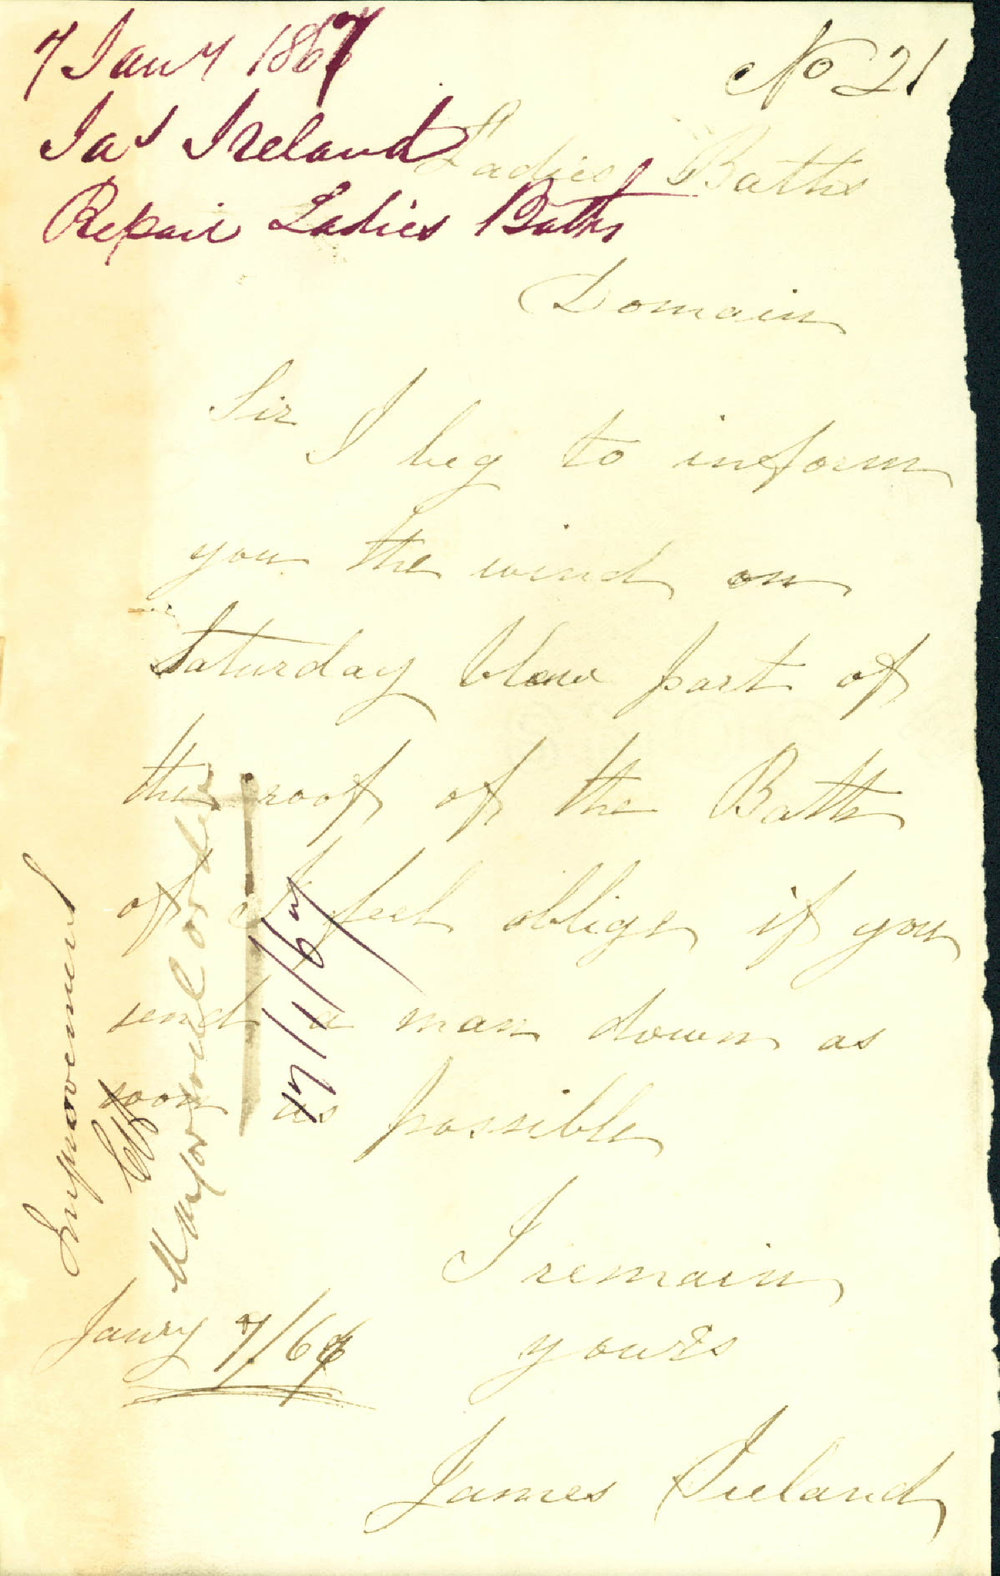 7 Jany 1867
No 21
Jas Ireland
Repair Ladies Baths
Ladies Baths
Domain
Sir
I beg to inform
you the wind on
Saturday blew part of
the roof of the Bath
of I feel oblige if you
send a man down as
soon as possible
I remain
yours
James Ireland
Janry 7/67
Improvement
Mayor will order
17/1/67